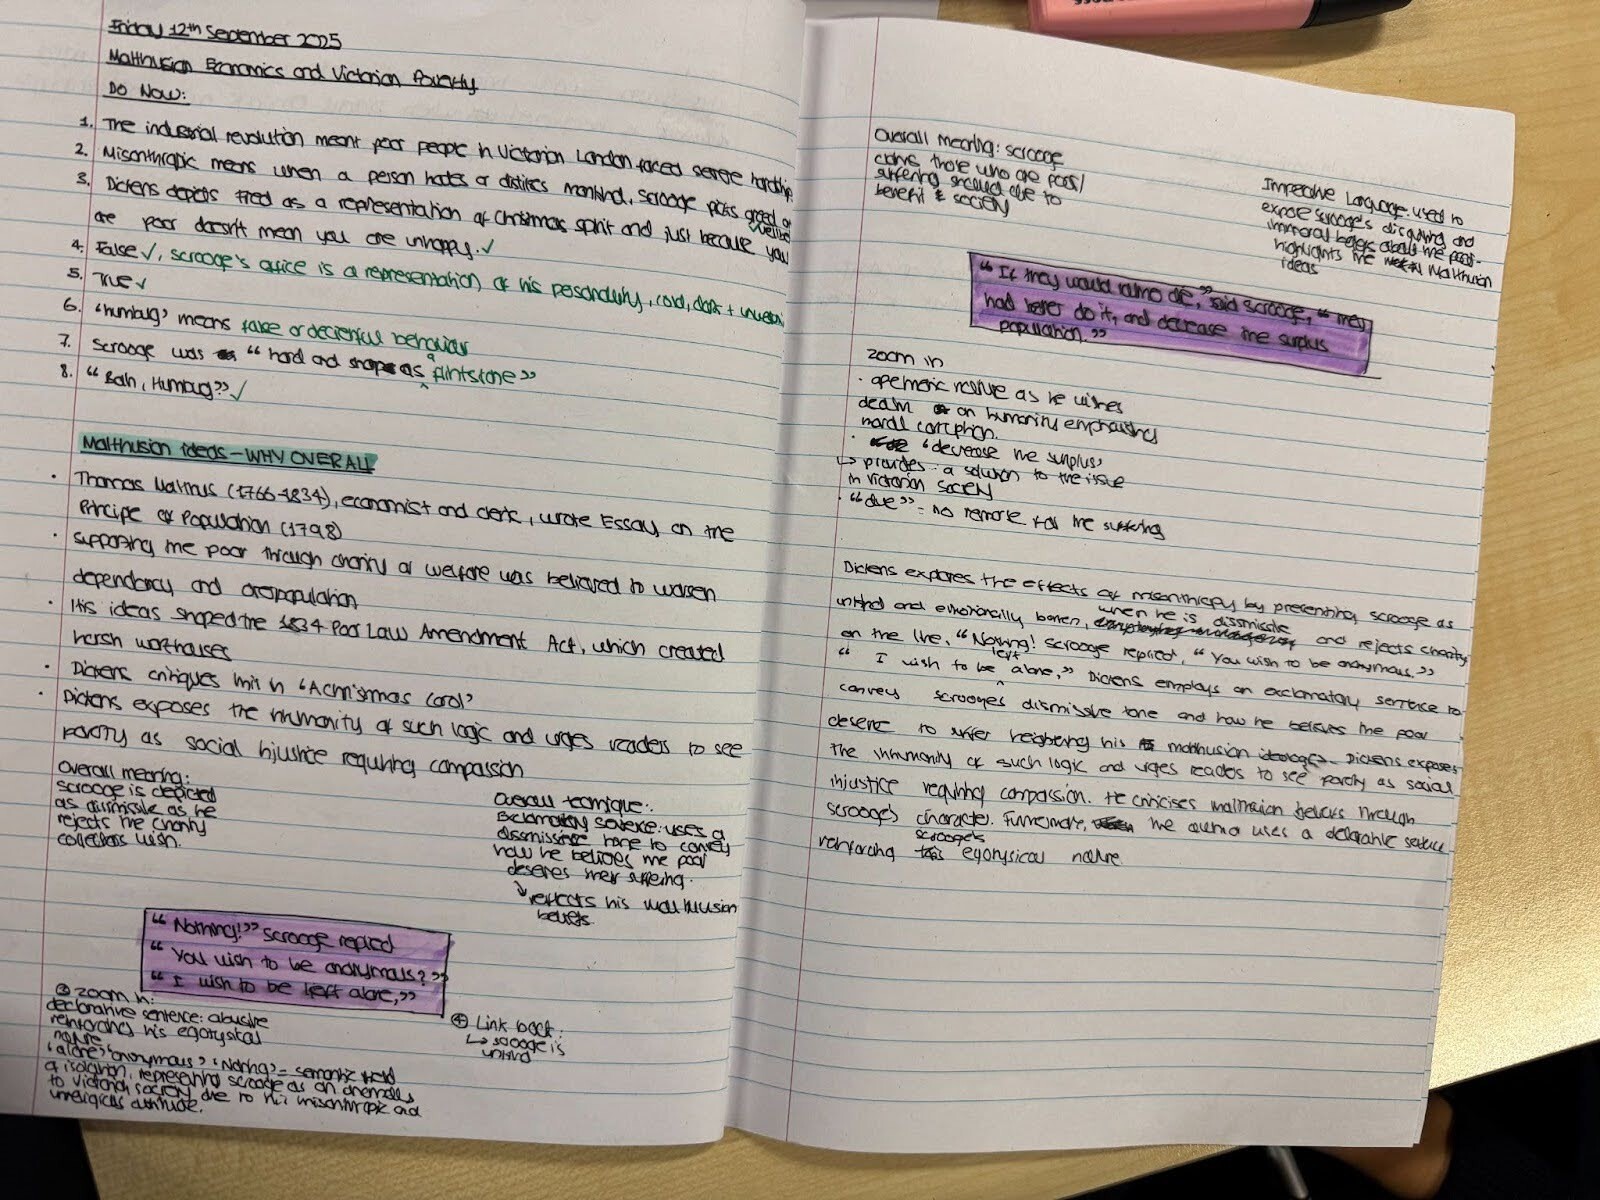 Friday 12th September 2025
Malthusian Economics and Victorian Poverty
Do Now:
1. The industrial revolution meant poor people in Victorian London faced severe hardship.
2. Misanthropic means when a person hates or dislikes mankind, Scrooge picks greed or
3. Dickens depicts Fred as a representation of Christmas spirit and just because you
are poor doesn't mean you are unhappy. ✓
4. False ✓, Scrooge's office is a representation of his personality, cold, dark +
5. True ✓
6. 'humbug' means fake or deceitful behaviour
7. Scrooge was "hard and sharp as flintstone"
8. "Bah, Humbug!" ✓
Malthusion ideas - WHY OVERALL
• Thomas Malthus (1766-1834), economist and cleric, wrote Essay on the
Principle of Population (1798)
• supporting the poor through charity or welfare was believed to worsen
dependancy and overpopulation
• His ideas shaped the 1834 Poor Law Amendment Act, which created
harsh workhouses
• Dickens critiques this in 'A Christmas Carol'
• Dickens exposes the inhumanity of such logic and urges readers to see
poverty as social injustice requiring compassion
Overall meaning:
Scrooge is depicted
as dismissive as he
rejects the charity
collectors wish.
Overall technique:
Exclamatory sentence: uses a
dismissive tone to convey
how he believes the poor
deserves their suffering.
↳ reflects his malthusion
beliefs
"Nothing!" Scrooge replied
"You wish to be anonymous?"
"I wish to be left alone,"
zoom in:
declarative sentence: abusive
reinforces his egotysical
nature
'alone' 'anonymous' 'Nothing' = semantic field
of isolation, representing scrooge as an
to victorian society due to his misanthropic and
attitude.
④ Link back:
↳ scrooge is
unkind
Overall meaning: scrooge
claims those who are poor/
suffering should die to
benefit society
Imperative Language: used to
expose scrooge's disgusting and
immoral beliefs about the poor-
highlights the Malthusion
ideas
"If they would rather die," said scrooge, "they
had better do it, and decrease the surplus
population."
zoom in
• nature as he wishes
death on humanity emphasises
moral corruption.
• 'decrease the surplus'
↳ provides a solution to the issue
in Victorian society
• "die" = no remorse for the suffering
Dickens explores the effects of misanthropy by presenting scrooge as
unkind and emotionally barren, when he is dismissive and rejects charity
on the line, "Nothing! Scrooge replied, "You wish to be anonymous."
"I wish to be left alone," Dickens employs an exclamatory sentence to
convey scrooges dismissive tone and how he believes the poor
deserve to suffer his malthusion ideologies. Dickens exposes
the inhumanity of such logic and urges readers to see poverty as social
injustice requiring compassion. He criticises malthusian beliefs through
scrooge's character. Furthermore, the author uses a declarative sentence
reinforcing scrooge's egotysical nature